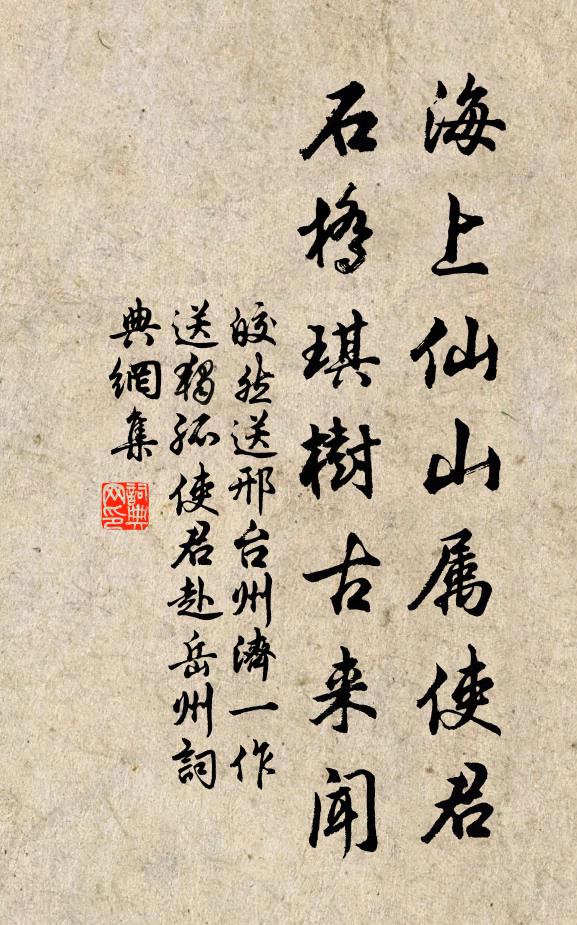 海上仙山属使君
石桥琪樹古来闻
皎然送邢台州濟一作
送獨孤使君赴岳州詞
典網集
詞典網印